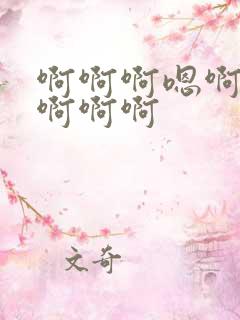 啊啊啊嗯啊
啊啊啊
文奇